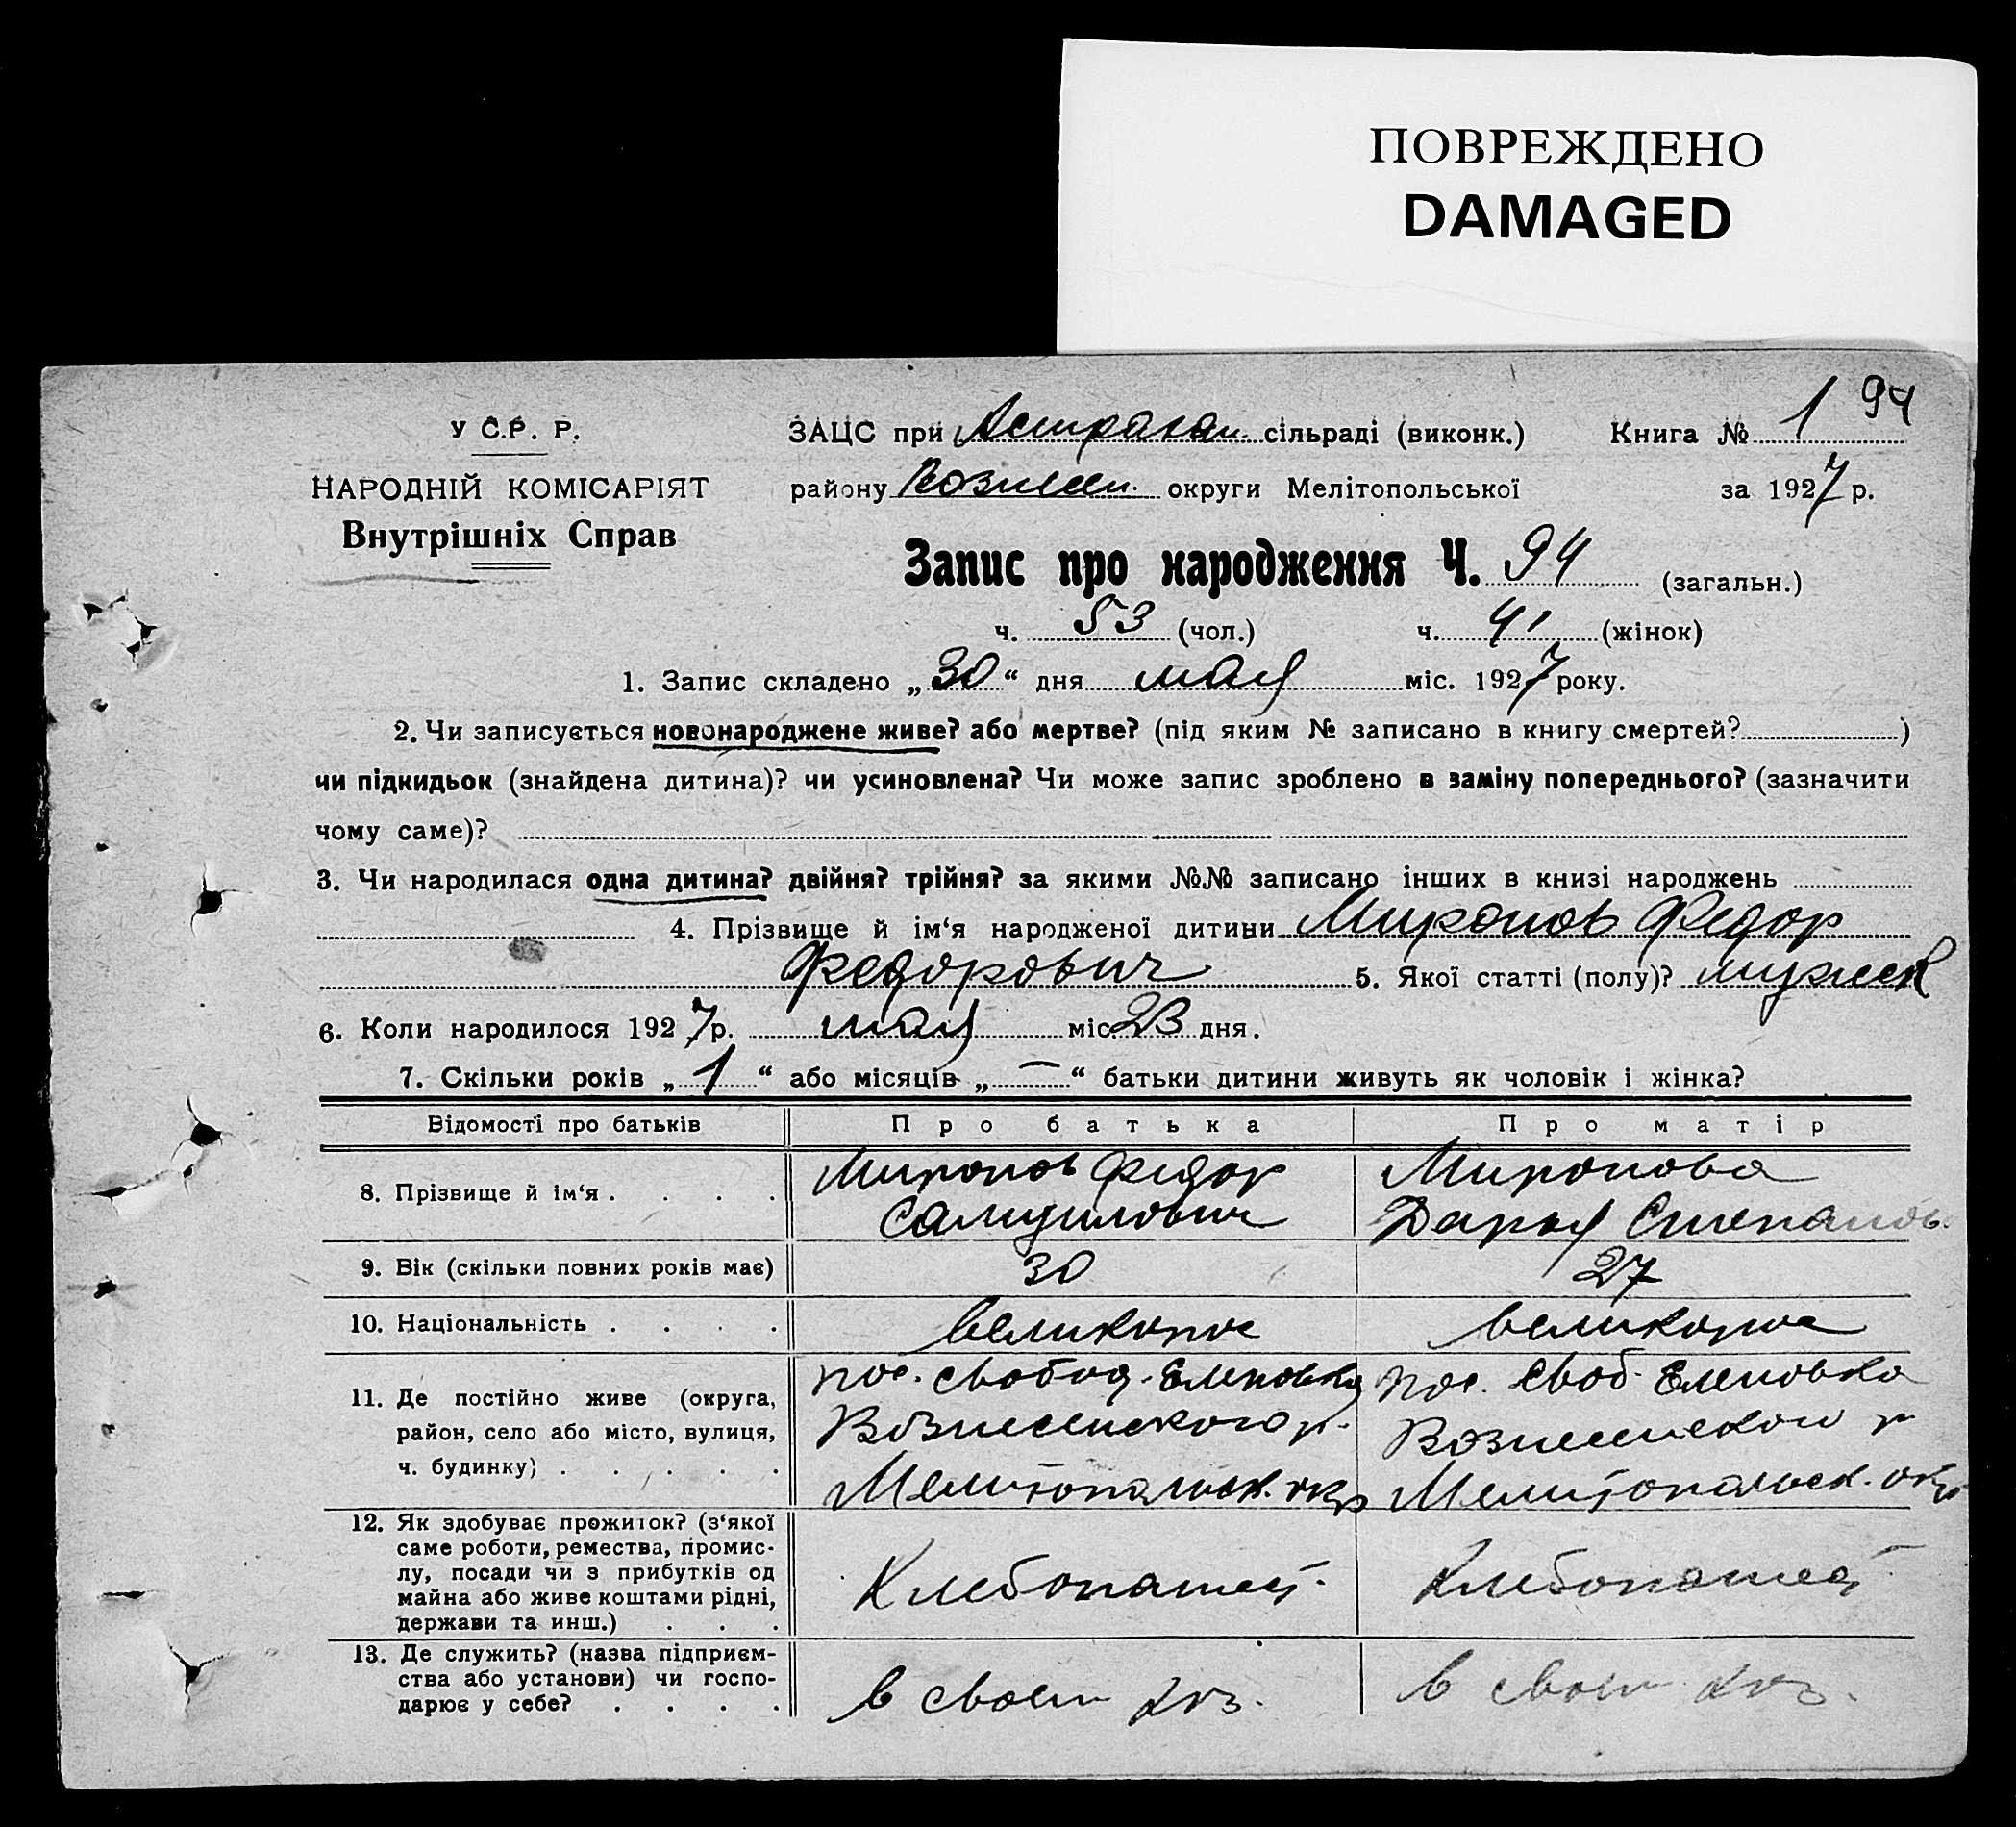 ПОВРЕЖДЕНО
DAMAGED
94
У С.Р. Р.
ЗАЦС при Астрахан. сільраді (виконк.) Книга № 1
НАРОДНІЙ КОМІСАРІЯТ
району Вознесен. округи Мелітопольської за 1927 р.
Внутрішніх Справ
Запис про народження Ч. 94 (загальн.)
ч. 53 (чол.) ч. 41 (жінок)
1. Запис складено „30“ дня мая міс. 1927 року.
2. Чи записується новонароджене живе? або мертве? (під яким № записано в книгу смертей? )
чи підкидьок (знайдена дитина)? чи усиновлена? Чи може запис зроблено в заміну попереднього? (зазначити
чому саме)?
3. Чи народилася одна дитина? двійня? трійня? за якими №№ записано інших в книзі народжень
4. Прізвище й ім‘я народженої дитини Миронов Федор
Федорович 5. Якої статті (полу)? мужск
6. Коли народилося 1927 р. мая міс. 23 дня.
7. Скільки років „1“ або місяців „—“ батьки дитини живуть як чоловік і жінка?
Відомості про батьків Про батька Про матір
8. Прізвище й ім‘я . . . . Миронов Федор Миронова
Самуилович Дарья Степанов.
9. Вік (скільки повних років має) 30 27
10. Національність . . . . великорос великорос
11. Де постійно живе (округа, пос. Свобод. Еленовка пос. Своб. Еленовка
район, село або місто, вулиця, Вознесенского р. Вознесенского р
ч. будинку) . . . . . Мелитопольск. окр Мелитопольск. окр
12. Як здобуває прожиток? (з‘якої
саме роботи, ремества, промис-
лу, посади чи з прибутків од Хлебопашец. Хлебопашец
майна або живе коштами рідні,
держави та инш.) . . .
13. Де служить? (назва підприєм-
ства або установи) чи госпо- в своем хоз. в своем хоз.
дарює у себе? . . . .